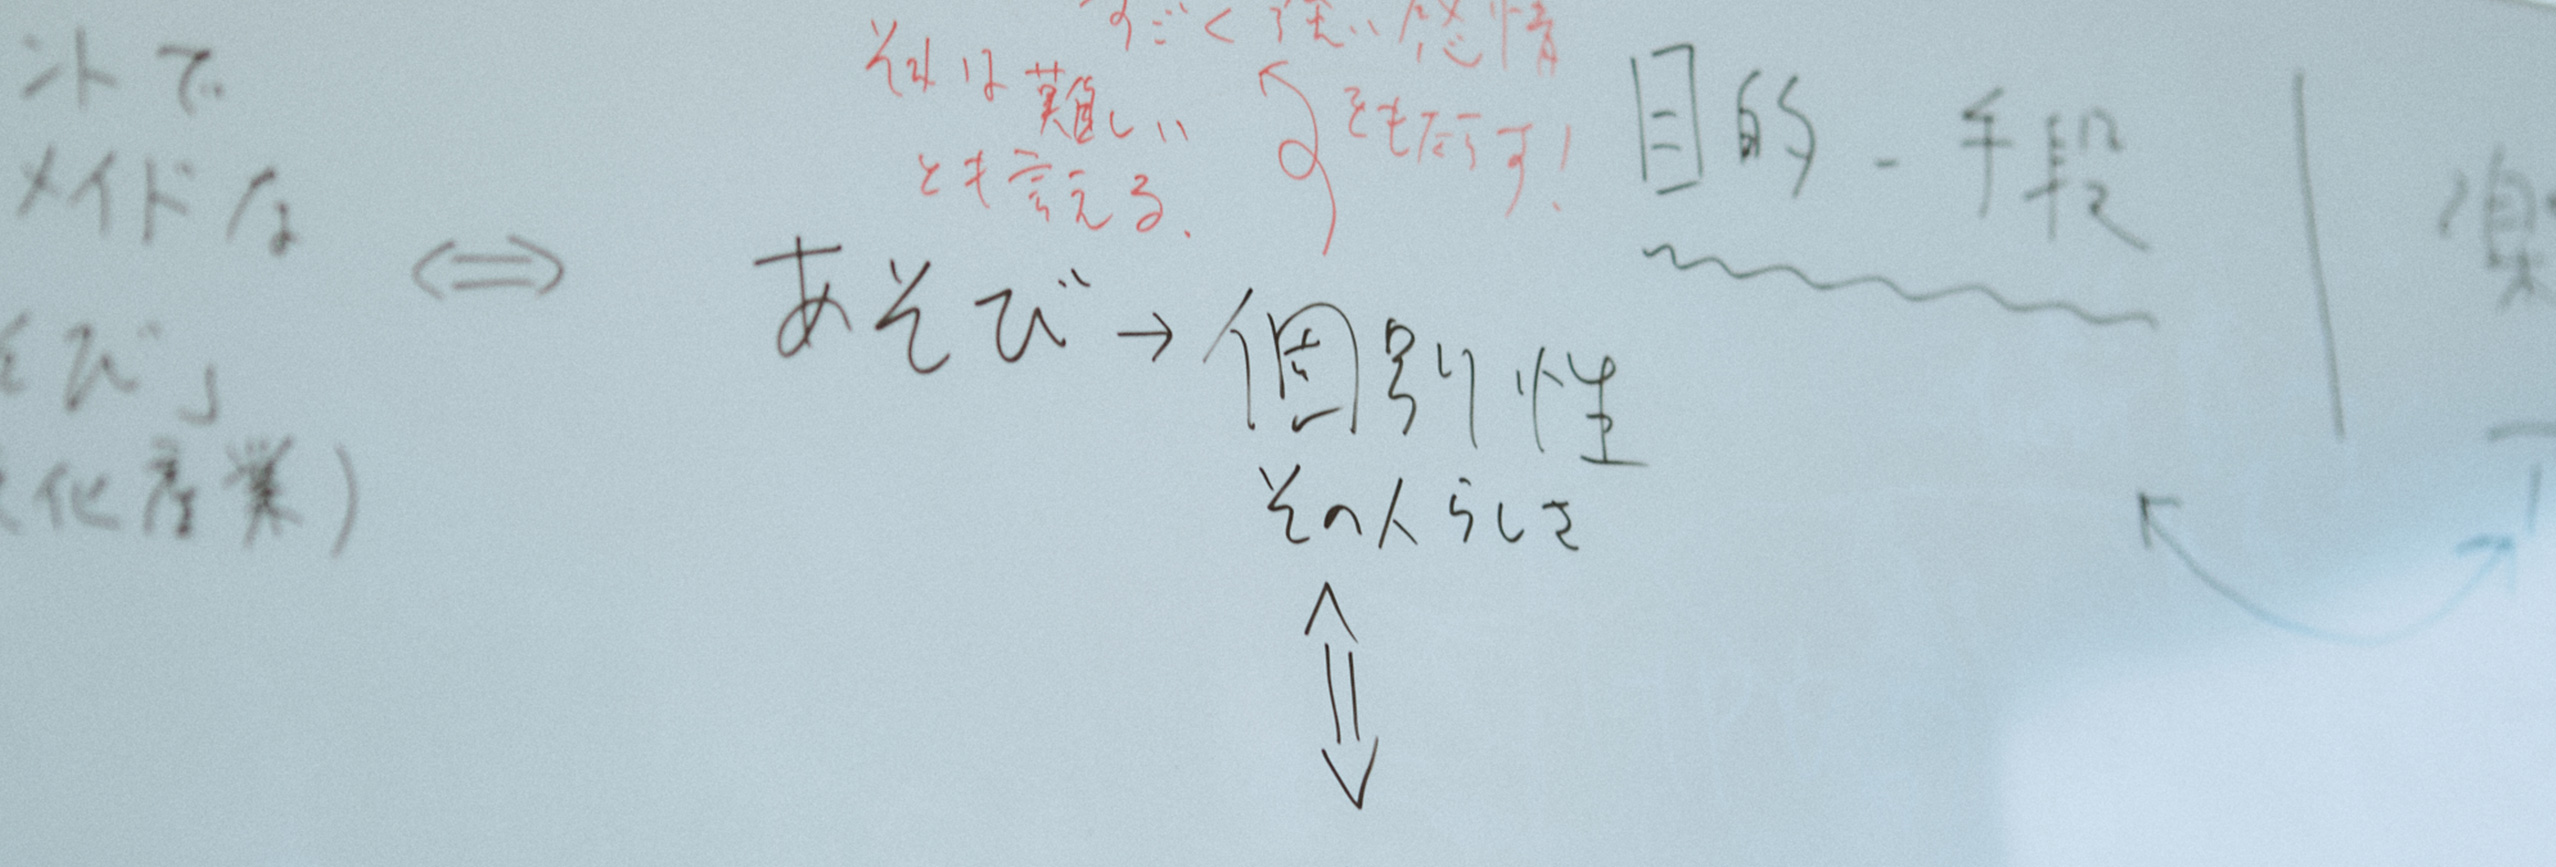 ントで
メイドな
そび」
文化産業)
⇔
すごく強い感情
をも応す!
それは難しい
とも言える.
あそび→個別性
その人らしさ
目的-手段